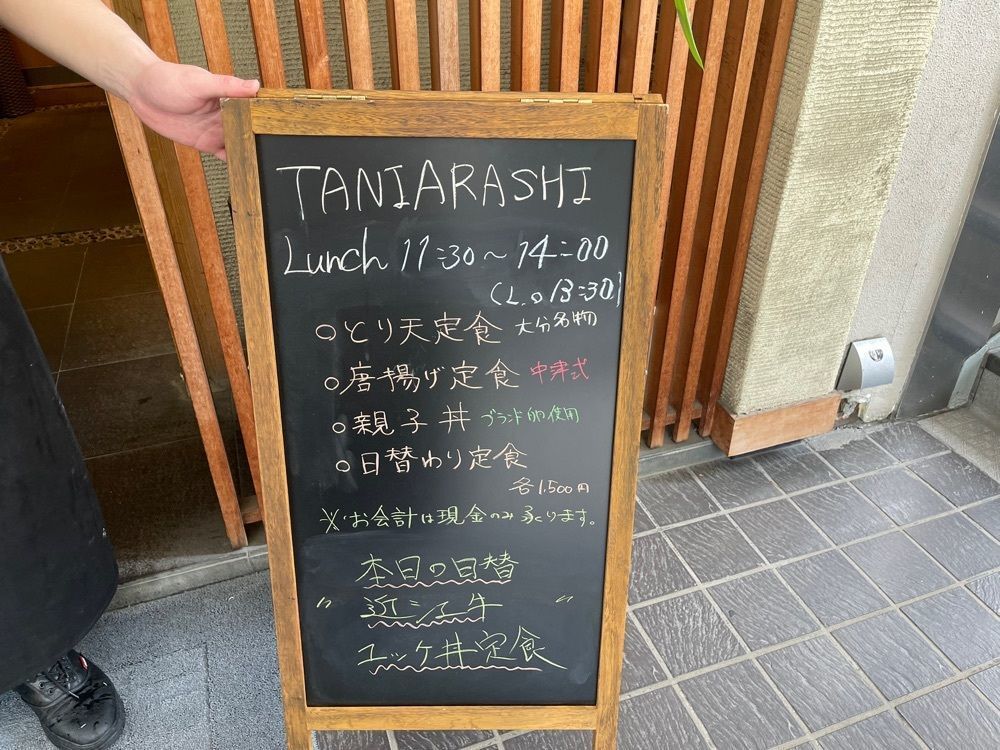 TANIARASHI
Lunch 11:30~14:00
(L.O 13:30)
○とり天定食 大分名物
○唐揚げ定食 中津式
○親子丼 ブランド卵使用
○日替わり定食
各1,500円
※お会計は現金のみ承ります。
本日の日替
"近江牛"
ユッケ丼定食